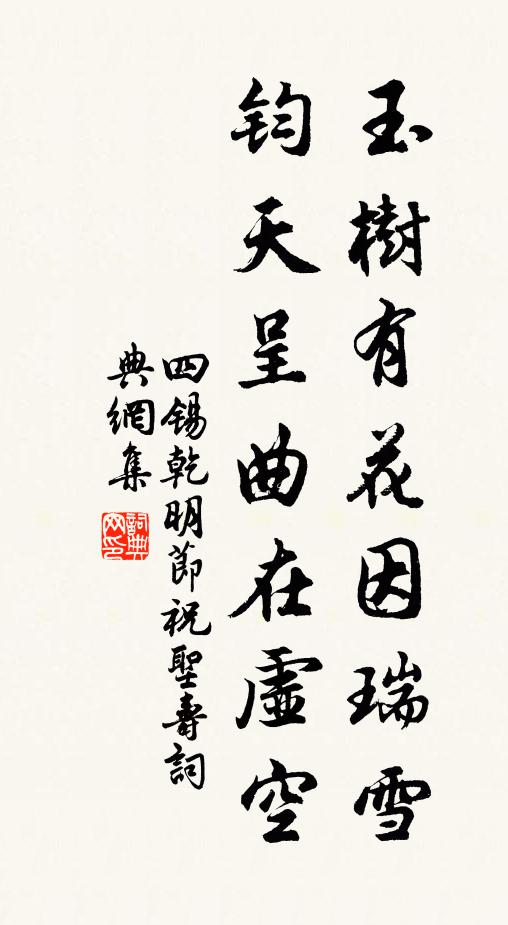 玉樹有花因瑞雪
鈞天呈曲在虛空
四錫乾明節祝聖壽詞
典網集
詞典網印